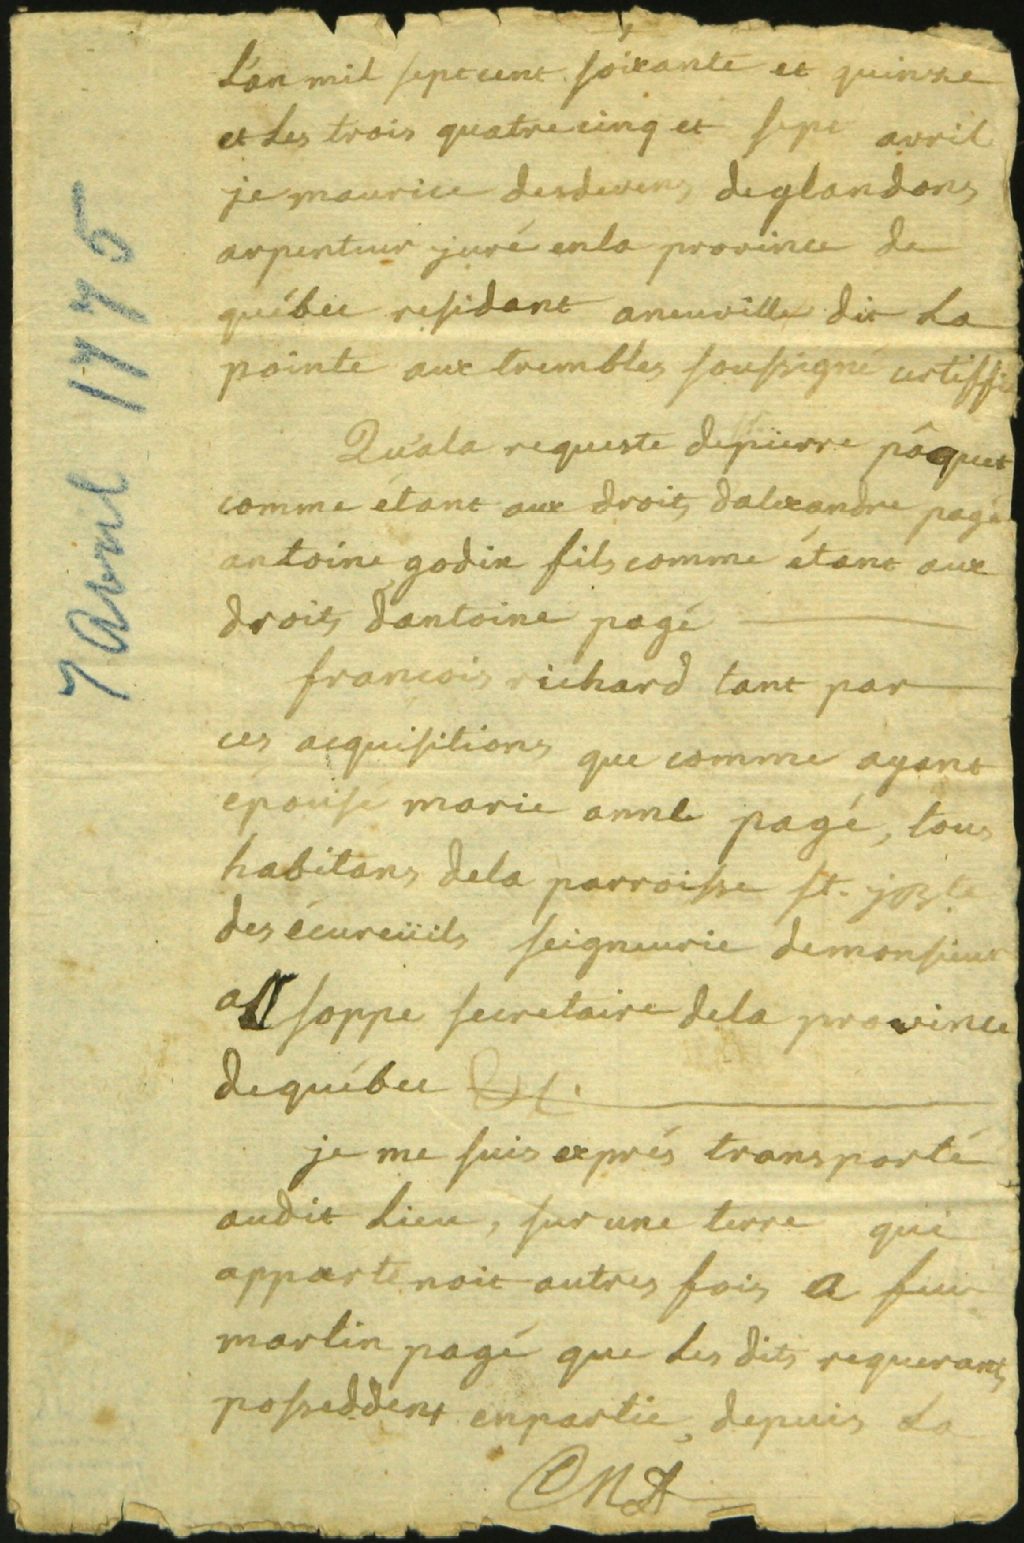 7 Avril 1775
L'an mil sept cent soixante et quinze
et les trois quatre cinq et sept avril
je maurice desdevens deglandons
arpenteur juré enla province de
québec residant aneuville dit La
pointe aux trembles soussigné certiffie
Qu'ala requeste depierre pâquet
comme étant aux droits dalexandre pagé
antoine godin fils comme étant aux
droits dantoine pagé
francois richard tant par
ces acquisitions que comme ayant
epousé marie anne pagé, tous
habitans dela parroisse st.
des écureüils seigneurie demonsieur
allsoppe secretaire dela province
dequébec &c.
je me suis exprés transporté
audit Lieu, sur une terre qui
appartenoit autres fois a feu
martin pagé que Les dits requerants
posseddent enpartie, depuis La